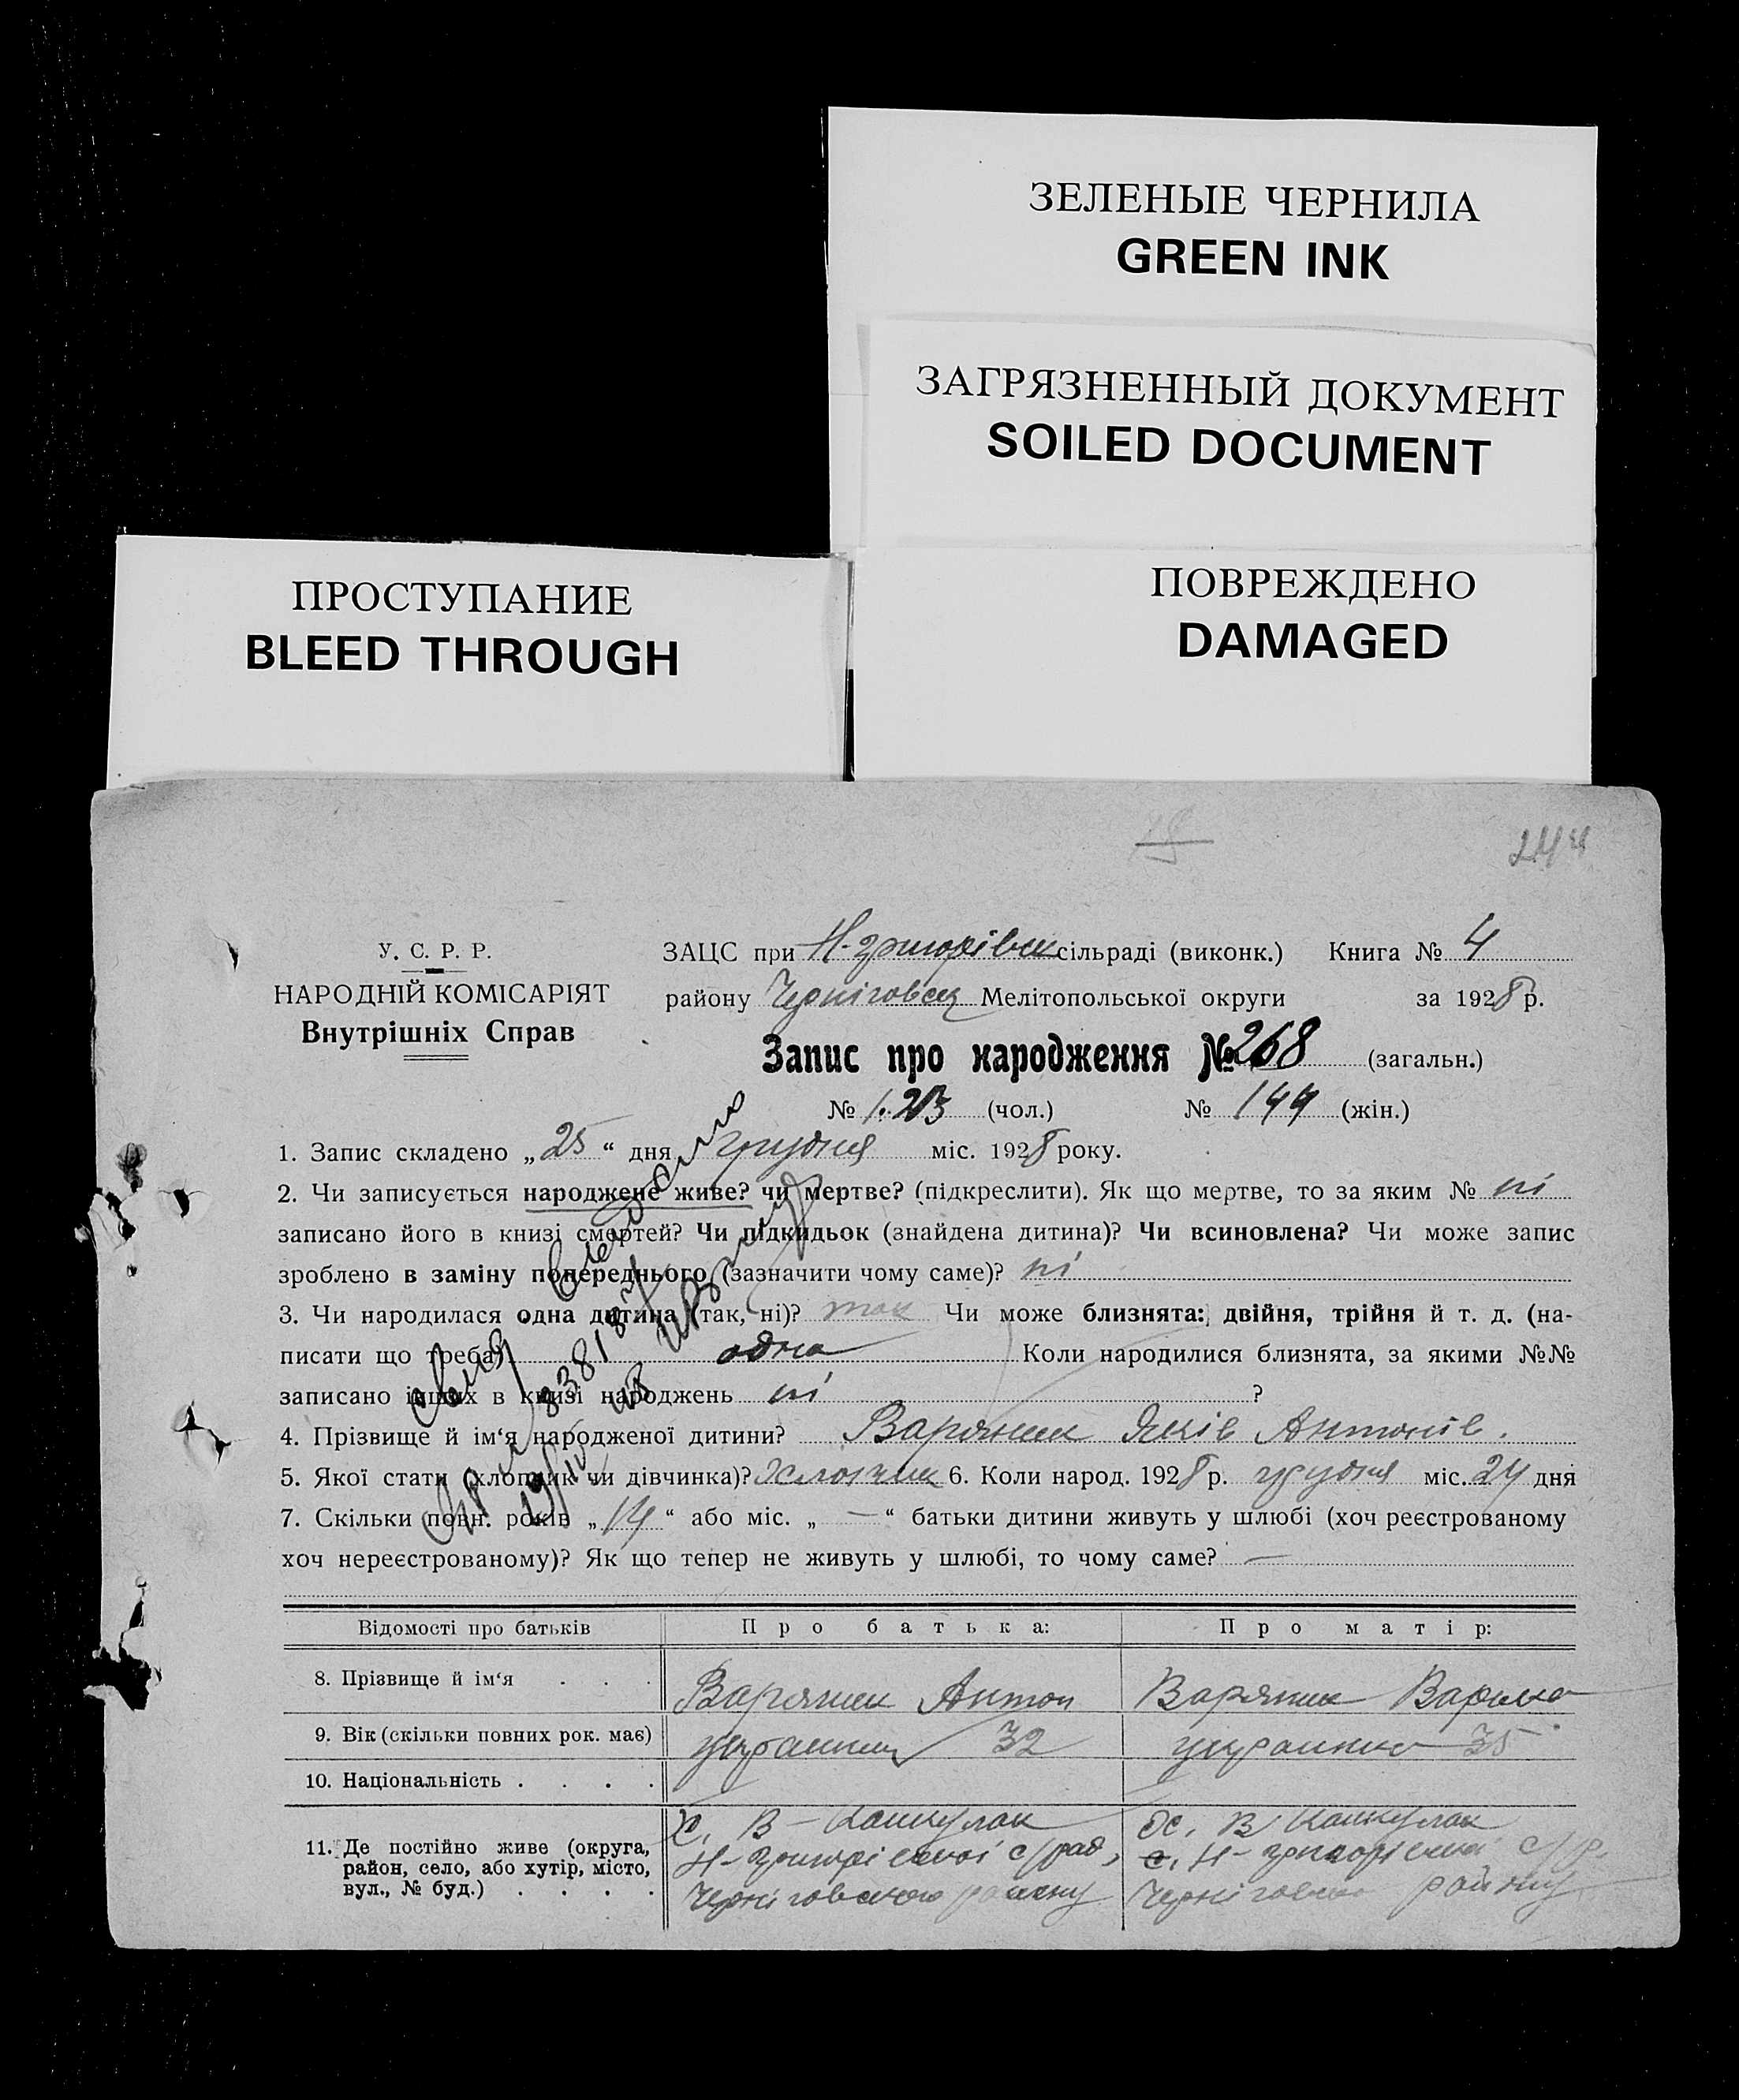 ЗЕЛЕНЫЕ ЧЕРНИЛА
GREEN INK
ЗАГРЯЗНЕННЫЙ ДОКУМЕНТ
SOILED DOCUMENT
ПРОСТУПАНИЕ
BLEED THROUGH
ПОВРЕЖДЕНО
DAMAGED
У. С. Р. Р.
НАРОДНІЙ КОМІСАРІЯТ
Внутрішніх Справ
ЗАЦС при Н-григорівск сільраді (виконк.) Книга № 4
району Чернігівск Мелітопольської округи за 1928 р.
Запис про народження № 268 (загальн.)
№ 123 (чол.) № 144 (жін.)
1. Запис складено „25“ дня грудня міс. 1928 року.
2. Чи записується народжене живе? чи мертве? (підкреслити). Як що мертве, то за яким № ні
записано його в книзі смертей? Чи підкидьок (знайдена дитина)? Чи всиновлена? Чи може запис
зроблено в заміну попереднього (зазначити чому саме)? ні
3. Чи народилася одна дитина (так, ні)? так Чи може близнята: двійня, трійня й т. д. (на-
писати що треба) одна Коли народилися близнята, за якими №№
записано інших в книзі народжень ні ?
4. Прізвище й ім‘я народженої дитини? Варяник Яків Антонів.
5. Якої стати (хлопчик чи дівчинка)? Хлопчик 6. Коли народ. 1928 р. грудня міс. 24 дня
7. Скільки повн. років „14“ або міс. „—“ батьки дитини живуть у шлюбі (хоч реєстрованому
хоч нереєстрованому)? Як що тепер не живуть у шлюбі, то чому саме? —
Відомості про батьків Про батька: Про матір:
8. Прізвище й ім‘я . . . Варяник Антон Варяник Варвара
9. Вік (скільки повних рок. має) українец 32 українка 35
10. Національність . . . .
11. Де постійно живе (округа, район, село, або хутір, місто, вул., № буд.) . . . .
х. В-Кашкулак
Н-григорівської с/рад,
Черніговского району
х. В Кашкулак
с. Н-григорівської с/р.
району